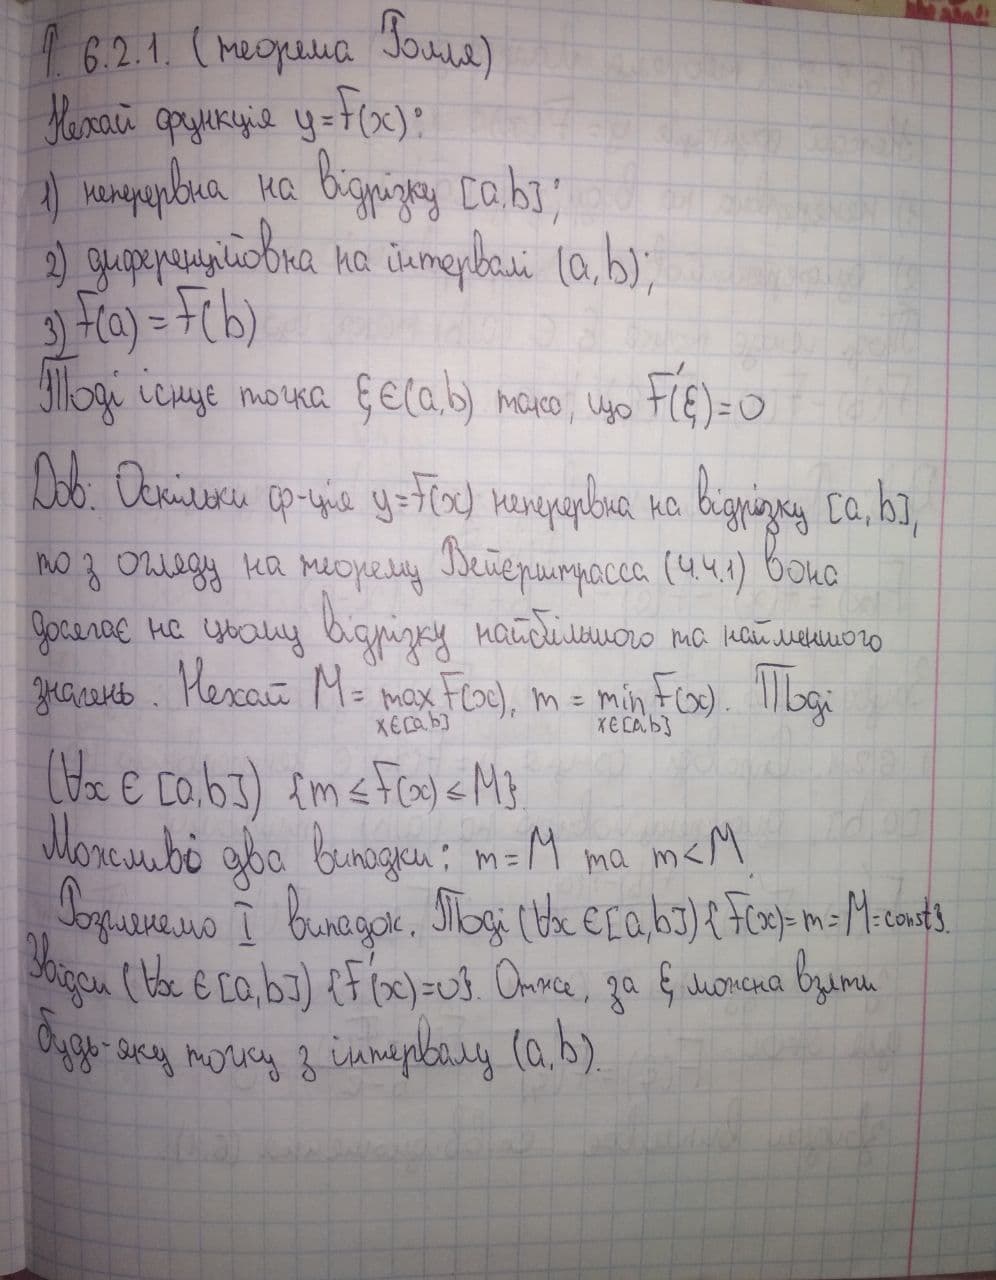 Т. 6.2.1. (теорема Ролля)
Нехай функція y=f(x):
1) неперервна на відрізку [a,b];
2) диференційовна на інтервалі (a,b);
3) f(a) = f(b)
Тоді існує точка ξ∈(a,b) така, що f'(ξ)=0
Дов: Оскільки ф-ція y=f(x) неперервна на відрізку [a,b],
то з огляду на теорему Вейєрштрасса (4.4.1) вона
досягає на цьому відрізку найбільшого та найменшого
значень. Нехай M = max f(x), m = min f(x). Тоді
x∈[a,b] x∈[a,b]
(∀x ∈ [a,b]) {m ≤ f(x) ≤ M}
Можливі два випадки: m = M та m < M.
Розглянемо I випадок. Тоді (∀x ∈ [a,b]) {f(x)=m=M=const}.
Звідси (∀x ∈ [a,b]) {f'(x)=0}. Отже, за ξ можна взяти
будь-яку точку з інтервалу (a,b).